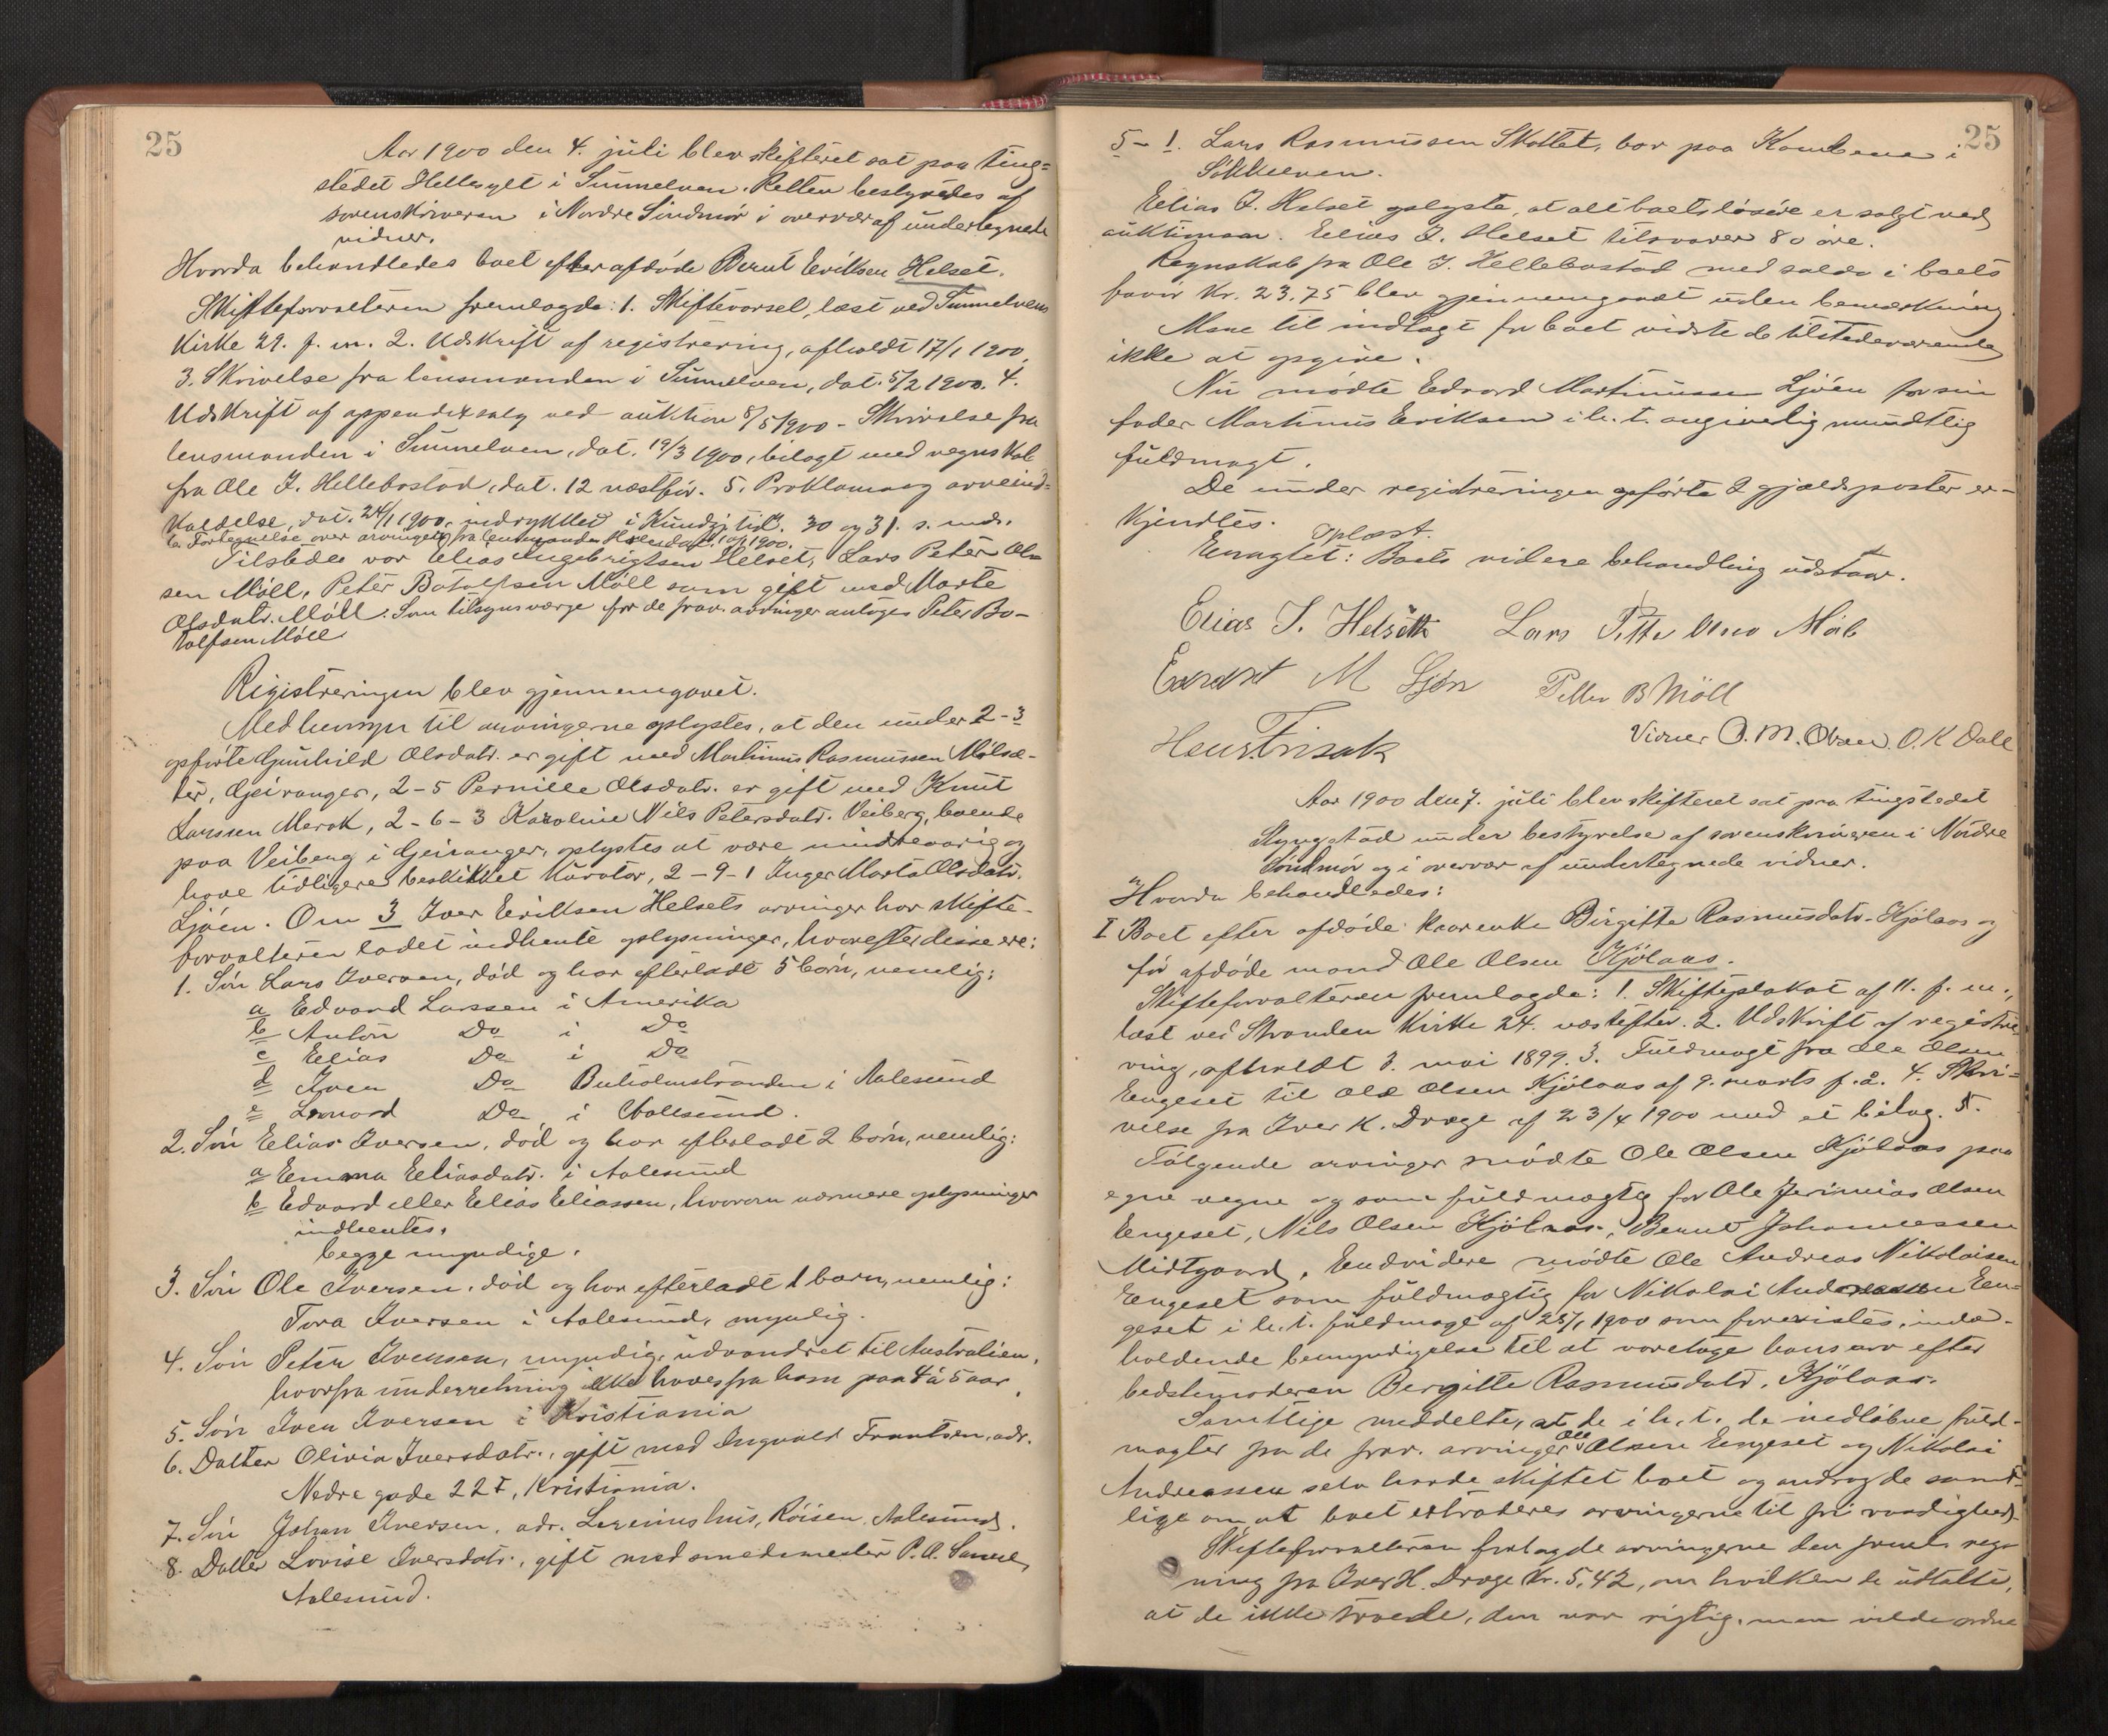 25
Aar 1900 den 4. juli blev skifteret sat paa ting=
stedet Hellesylt i Sunnelven. Retten bestyredes af
sorenskriveren i Nordre Søndmør i overvær af undertegnede
vidner.
Hvorda behandledes boet efter afdøde Bernt Eriksen Helset.
Skifteforvalteren fremlagde: 1. Skiftevarsel, læst ved Sunnelvens
Kirke 29. f. m. 2. Udskrift af registrering, afholdt 17/1 1900,
3. Skrivelse fra lensmanden i Sunnelven, dat. 5/2 1900. 4.
Udskrift af appendixsalg ved auktion 8/5 1900 - Skrivelse fra
lensmanden i Sunnelven, dat. 19/3 1900, bilagt med regnskab
fra Ole J. Hellebostad, dat. 12 næstfør. 5. Proklama og arveind=
kaldelse, dat. 24/1 1900, indrykket i Kundgj. tid. 30 og 31. s. md.
6. Fortegnelse over arvingerne fra lensmanden 1900.
Tilstede var Elias Ingebrigtsen Helset, Lars Peter Ol-
sen Möll, Peter Botolfsen Möll som gift med Marte
Olsdatr. Möll. Som tilsynsværge for de frav. arvinger antoges Peter Bo-
tolfsen Möll.
Registreringen blev gjennemgaaet.
Med hensyn til arvingerne oplystes, at den under 2-3
opførte Gunhild Olsdatr. er gift med Martinus Rasmussen Mölsæ-
ter, Geiranger, 2-5 Pernille Olsdatr. er gift med Knut
Larssen Merok, 2-6-3 Karoline Nils Petersdatr. Veiberg, boende
paa Veiberg i Geiranger, oplystes at være mindreaarig og
have tidligere beskikket kurator, 2-9-1 Inger Marta Olsdatr.
Ljöen. Om 3 Iver Eriksen Helsets arvinger har skifte-
forvalteren ladet indhente oplysninger, hvorefter disse ere:
1. Søn Lars Iversen, død og har efterladt 5 børn, nemlig:
a Edvard Larssen i Amerika
b Anton Do i Do
c Elias Do i Do
d Iver Do Buholmstranden i Aalesund
e Leonard Do i Aalesund.
2. Søn Elias Iversen, død og har efterladt 2 børn, nemlig:
a Emma Eliasdatr. i Aalesund
b Edvard eller Elias Eliassen, hvorom nærmere oplysninger
indhentes.
begge myndige.
3. Søn Ole Iversen, død og har efterladt 1 barn, nemlig:
Tora Iversen i Aalesund, myndig.
4. Søn Peter Iversen, myndig, udvandret til Australien,
hvorfra underretning ikke haves fra ham paa 4 à 5 aar.
5. Søn Iver Iversen i Kristiania
6. Datter Olivia Iversdatr., gift med Ingvald Frantsen, adr.
Nedre gade 22 I, Kristiania.
7. Søn Johan Iversen, adr. Liveniushus, Röisen, Aalesund.
8. Datter Lovise Iversdatr., gift med smedmester P. A.
Aalesund.
25
5-1. Lars Rasmussen Skottet, bor paa i
Sökkelven.
Elias I. Helset oplyste, at alt boets løsøre er solgt ved
auktionen. Elias I. Helset tilsvarer 80 øre.
Regnskab fra Ole J. Hellebostad med saldo i boets
favør Kr. 23.75 blev gjennemgaaet uden bemærkning.
Mere til indtægt for boet vidste de tilstedeværende
ikke at opgive.
Nu mødte Edvard Martinussen Ljöen for sin
fader Martinus Eriksen i h. t. angivelig mundtlig
fuldmagt.
De under registreringen opførte 2 gjældsposter er-
kjendtes.
Oplæst.
Eragtet: Boets videre behandling udstaar.
Elias I. Helsett Lars Petter Olsen Möll
Edvard M Ljøn Petter B Möll
Hans Frisak Vidner O. M. Olsen. O. K Dale
Aar 1900 den 7. juli blev skifteret sat paa tingstedet
Slyngstad under bestyrelse af sorenskriveren i Nordre
Søndmør og i overvær af undertegnede vidner.
Hvorda behandledes:
I Boet efter afdøde kaarenke Birgitte Rasmusdatr. Kjölaas og
før afdøde mand Ole Olsen Kjölaas.
Skifteforvalteren fremlagde: 1. Skifteplakat af 11. f. m.,
læst ved Stranden Kirke 24. næstefter. 2. Udskrift af registre-
ring, afholdt 3. mai 1899. 3. Fuldmagt fra Ole Olsen
Engeset til Ole Olsen Kjölaas af 9. marts f. a. 4. Skri=
velse fra Iver K. Dræge af 23/4 1900 med et bilag. 5.
Følgende arvinger mødte Ole Olsen Kjölaas paa
egne vegne og som fuldmægtig for Ole Jerimias Olsen
Engeset, Nils Olsen Kjölaas, Bernt Johannessen
Midtgaard. Endvidere mødte Ole Andreas Nikolaisen
Engeset som fuldmægtig for Nikolai Andreassen En=
geset i h. t. fuldmagt af 25/1 1900 som forevistes, inde-
holdende bemyndigelse til at varetage hans arv efter
bedstemoderen Bergitte Rasmusdatr. Kjölaas.
Samtlige meddelte, at de i h. t. de indløbne fuld-
magter fra de frav. arvinger Ole Olsen Engeset og Nikolai
Andreassen selv havde skiftet boet og androg de samt=
lige om at boet extraderes arvingerne til fri raadighed.
Skifteforvalteren forelagde arvingerne den freml. reg-
ning fra Iver K. Dræge Kr. 5,42, om hvilken de udtalte,
at de ikke troede, den var rigtig, men vilde ordne